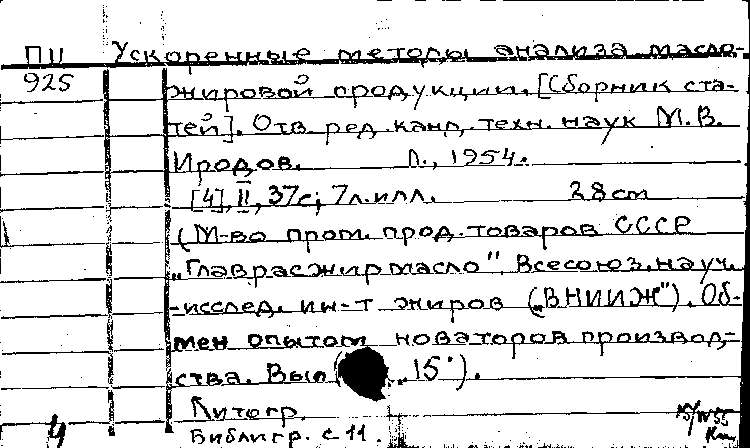 ПЦ Ускоренные методы анализа масло-
925 жировой продукции. [Сборник ста-
тей]. Отв. ред. канд. техн. наук М.В.
Иродов. Л., 1954.
[4], II, 37с; 7л. илл. 28cm
(М-во пром. прод. товаров СССР
„Главрасжирмасло". Всесоюз. науч.
-исслед. ин-т жиров („ВНИИЖ"). Об-
мен опытом новаторов производ-
ства. Вып( „15").
Литогр.
Библиогр. с 11.